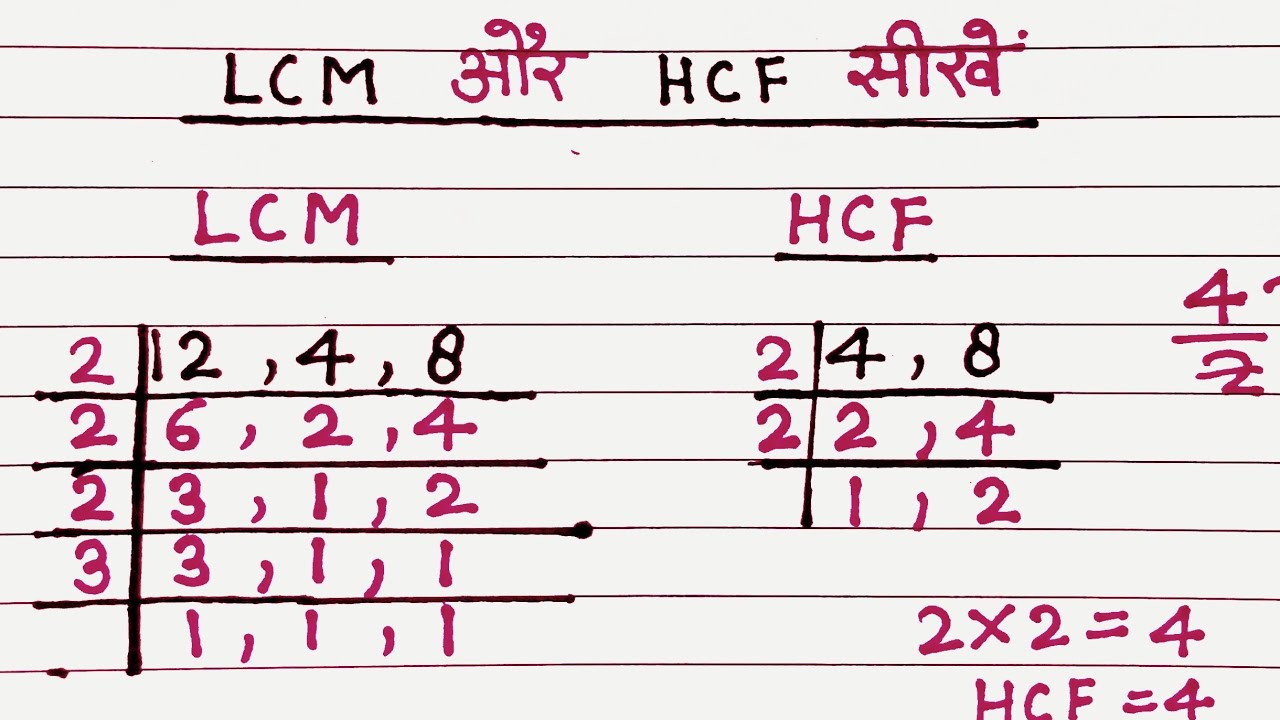 LCM और HCF सीखें
LCM
2 | 12 , 4 , 8
2 | 6 , 2 , 4
2 | 3 , 1 , 2
3 | 3 , 1 , 1
1 , 1 , 1
HCF
2 | 4 , 8
2 | 2 , 4
1 , 2
2 × 2 = 4
HCF = 4
4
2